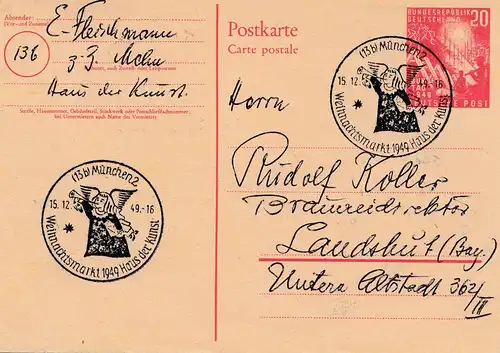 Absender:
E. Fleischmann
(13b)
z. Z. Mchn
Haus der Kunst
Straße, Hausnummer, Gebäudeteil, Stockwerk oder Postschließfachnummer;
bei Untermietern auch Name des Vermieters
Postkarte
Carte postale
BUNDESREPUBLIK
DEUTSCHLAND
20
1949
DEUTSCHE POST
(13b) München 2
15.12. 49.-16
Weihnachtsmarkt 1949 Haus der Kunst
(13b) München 2
15.12. 49.-16
Weihnachtsmarkt 1949 Haus der Kunst
Herrn
Rudolf Koller
Brauereidirektor
Landshut (Bay.)
Untere Altstadt 362/III